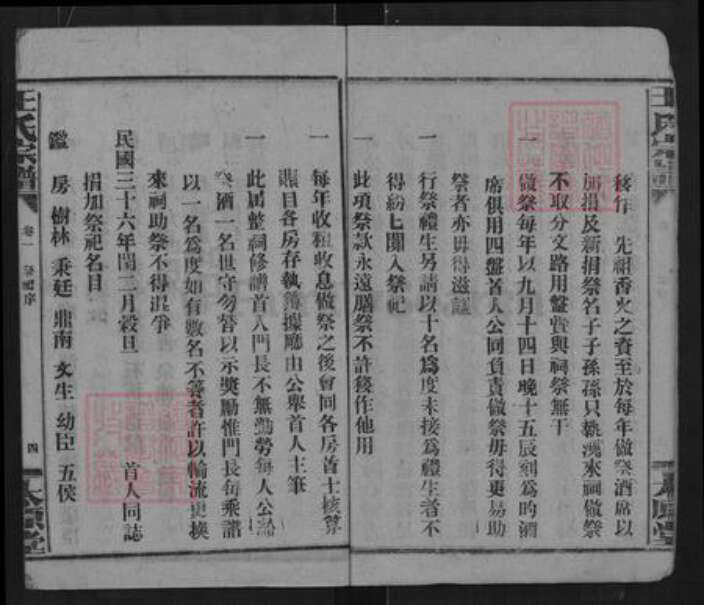 移作　先祖香火之資至於每年做祭酒席以
加捐及新捐祭名子子孫孫只執憑來祠做祭
不取分文路用盤費與祠祭無干
一　做祭每年以九月十四日晚十五辰刻為昀酒
席俱用四盤著人公同負責做祭毋得更易助
祭者亦毋得滋議
一　行祭禮生另請以十名為度未接為禮生者不
得紛七闖入祭祀
一　此項祭款永遠膳祭不許後作他用
一　每年收租收息做祭之後會同各房首士核算
賬目各房存執簿據廳由公舉首人主筆
一　此屆整祠修譜首入門長不無勤勞每人公議
祭酒一名世守勿替以示獎勵惟門長每乘譜
以一名為度如有數名不等者許以輪流更換
來祠助祭不得混爭
民國三十六年閏二月穀旦　首人同誌
捐加祭祀名目
鑑　房　樹林　秉廷　鼎南　文生　幼臣　五侯
王氏宗譜
卷一
四
太原堂